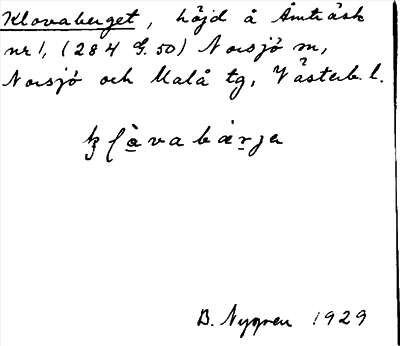 Klovaberget, höjd å Åmträsk
nr 1, (284 G. 50) Norsjö sn,
Norsjö och Malå tg, Västerb. l.
B. Nygren 1929